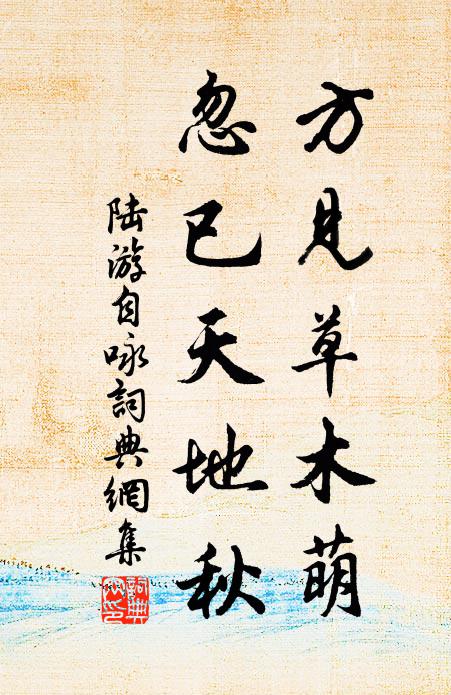 方見草木萌
忽已天地秋
陸游自咏詞典網集